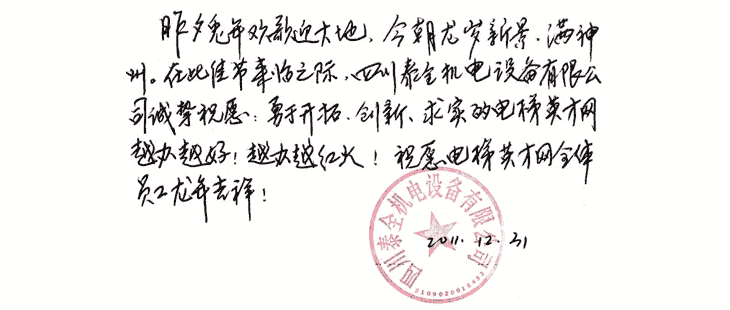 昨夕兔年欢歌迎大地，今朝龙岁新景满神
州。在此佳节来临之际，四川泰全机电设备有限公
司诚挚祝愿：勇于开拓、创新、求实的电梯英才网
越办越好！越办越红火！祝愿电梯英才网全体
员工龙年吉祥！
四川泰全机电设备有限公司
2011.12.31